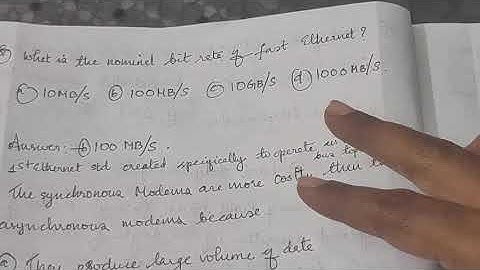 What is the nominel bit rate of fast Ethernet?
(a) 10MB/S (b) 100MB/S (c) 10GB/S (d) 1000MB/S.
Answer:- (b) 100 MB/S.
1st Ethernet std created specifically to operate in
bus top
The synchronous Modems are more costly then
asynchronous modems because
(a) They produce large volume of data